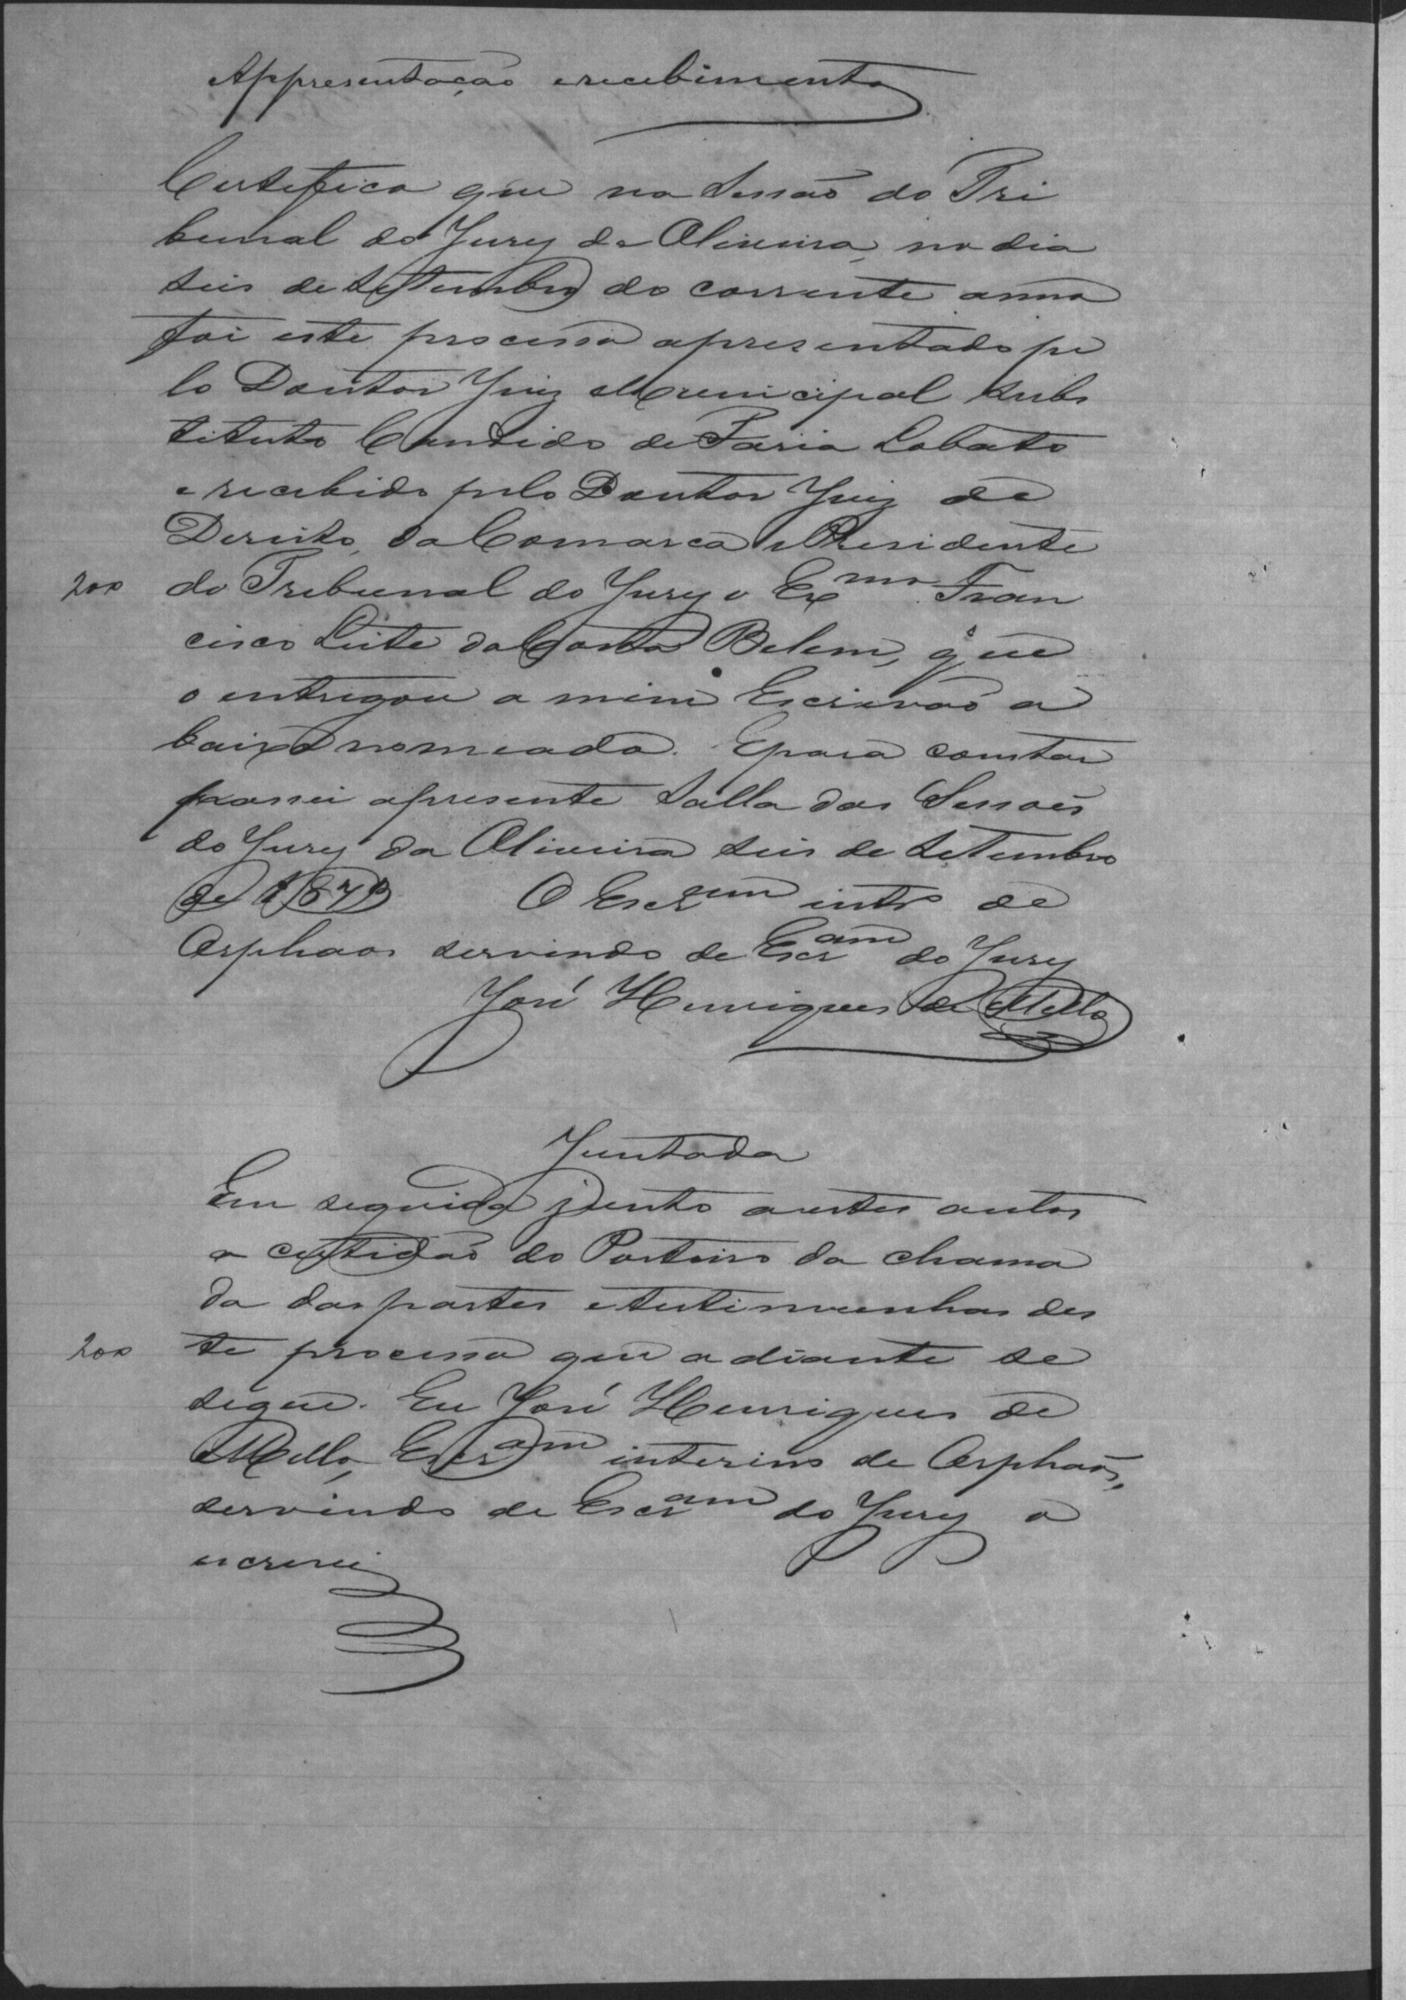 Appresentação e recebimento
Certifico que na Sessão do Tri
bunal do Jury da Oliveira, no dia
seis de Setembro do corrente anno
foi este processo apresentado pe
lo Doutor Juiz Municipal subs
tituto Candido de Faria Lobato
e recebido pelo Doutor Juiz de
Dereito, da Comarca e Presidente
200 do Tribunal do Jury o Exmo Fran
cisco Leite da Costa Belem, que
o entregou a mim Escrivão a
baixo nomeado. E para constar
passei a presente Salla das Sessoẽs
do Jury da Oliveira seis de Setembro
de O Escram into de
Orphaos servindo de Escram do Jury
José Henriques de Mello
Juntada
Em seguida junto a estes autos
a certidão do Porteiro da chama
da das partes e testimunhas des
200 te processo que a diante se
segue. Eu José Henriques de
Mello, Escram interino de Orphaõs,
servindo de Escram do Jury o
escrevi